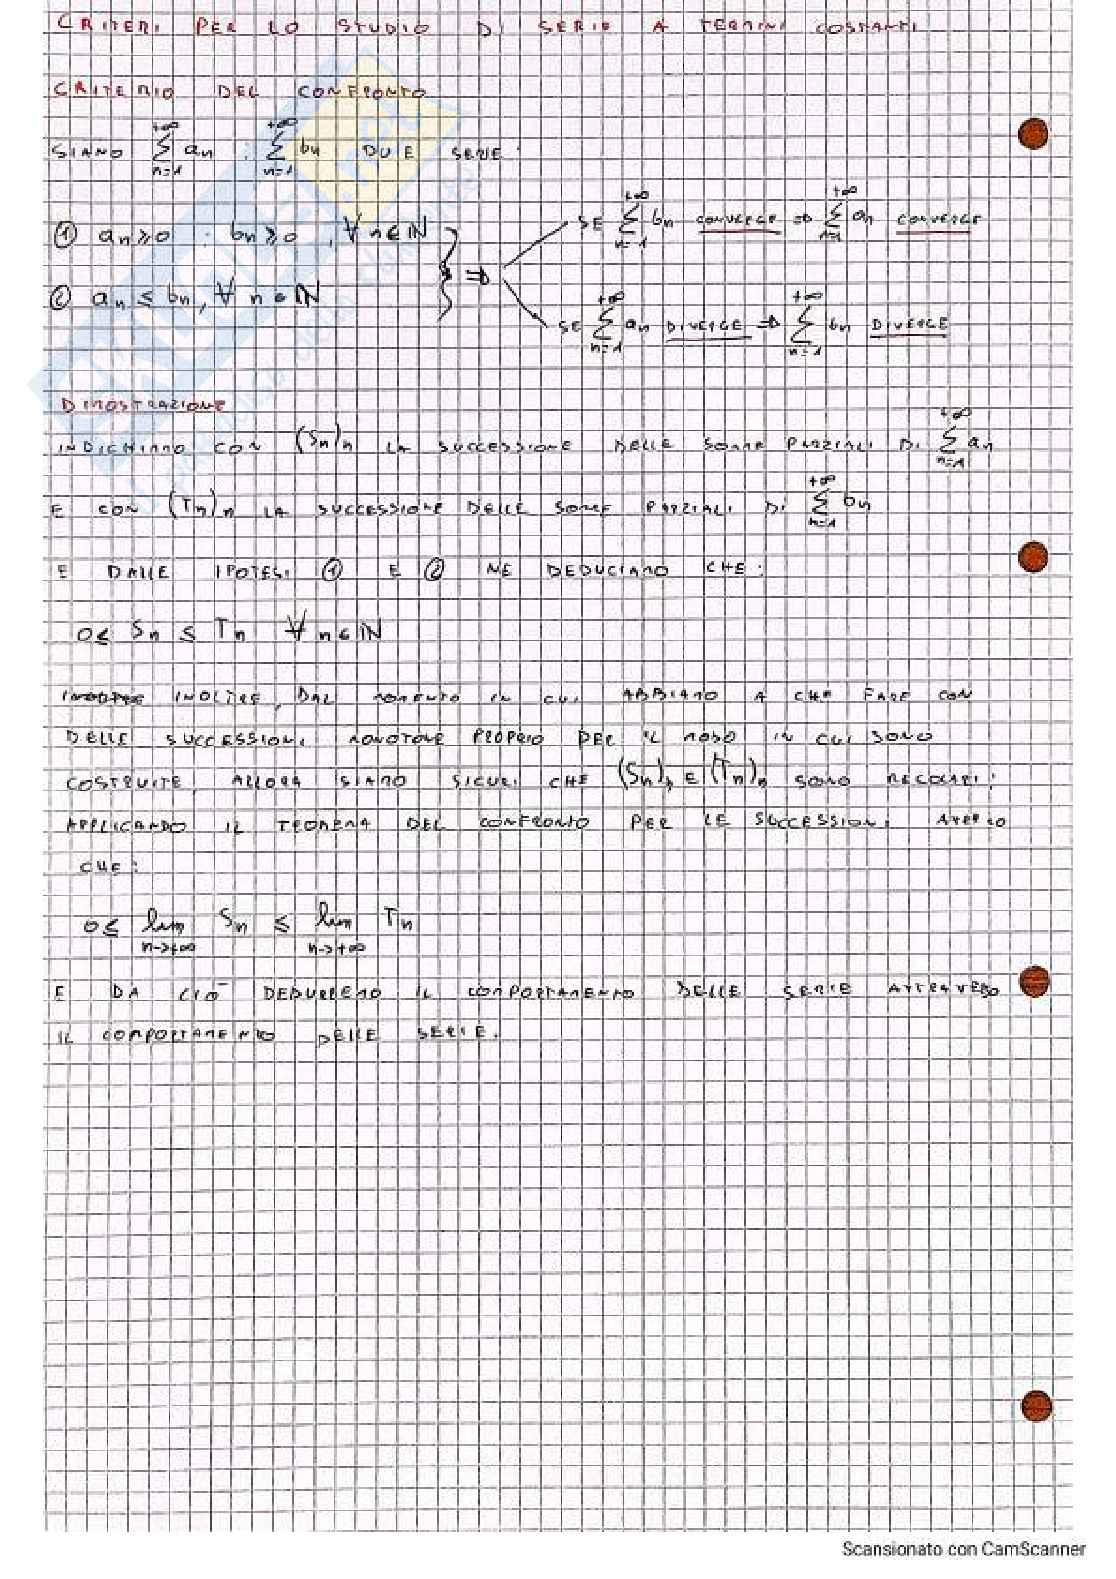 CRITERI PER LO STUDIO DI SERIE A TERMINI COSTANTI
CRITERIO DEL CONFRONTO
SIANO ∑_{n=1}^{+∞} a_n , ∑_{n=1}^{+∞} b_n DUE SERIE:
① a_n ≥ 0 ; b_n ≥ 0 , ∀ n ∈ ℕ
② a_n ≤ b_n, ∀ n ∈ ℕ
} ⇒
SE ∑_{n=1}^{+∞} b_n CONVERGE ⇒ ∑_{n=1}^{+∞} a_n CONVERGE
SE ∑_{n=1}^{+∞} a_n DIVERGE ⇒ ∑_{n=1}^{+∞} b_n DIVERGE
DIMOSTRAZIONE
INDICHIAMO CON (S_n)_n LA SUCCESSIONE DELLE SOMME PARZIALI DI ∑_{n=1}^{+∞} a_n
E CON (T_n)_n LA SUCCESSIONE DELLE SOMME PARZIALI DI ∑_{n=1}^{+∞} b_n
E DALLE IPOTESI ① E ② NE DEDUCIAMO CHE:
0 ≤ S_n ≤ T_n ∀ n ∈ ℕ
INOLTRE, DAL MOMENTO IN CUI ABBIAMO A CHE FARE CON
DELLE SUCCESSIONI MONOTONE PROPRIO PER IL MODO IN CUI SONO
COSTRUITE, ALLORA SIAMO SICURI CHE (S_n)_n E (T_n)_n SONO REGOLARI;
APPLICANDO IL TEOREMA DEL CONFRONTO PER LE SUCCESSIONI AVREMO
CHE:
0 ≤ lim_{n→+∞} S_n ≤ lim_{n→+∞} T_n
E DA CIÒ DEDURREMO IL COMPORTAMENTO DELLE SERIE ATTRAVERSO
IL COMPORTAMENTO DELLE SERIE.
Scansionato con CamScanner